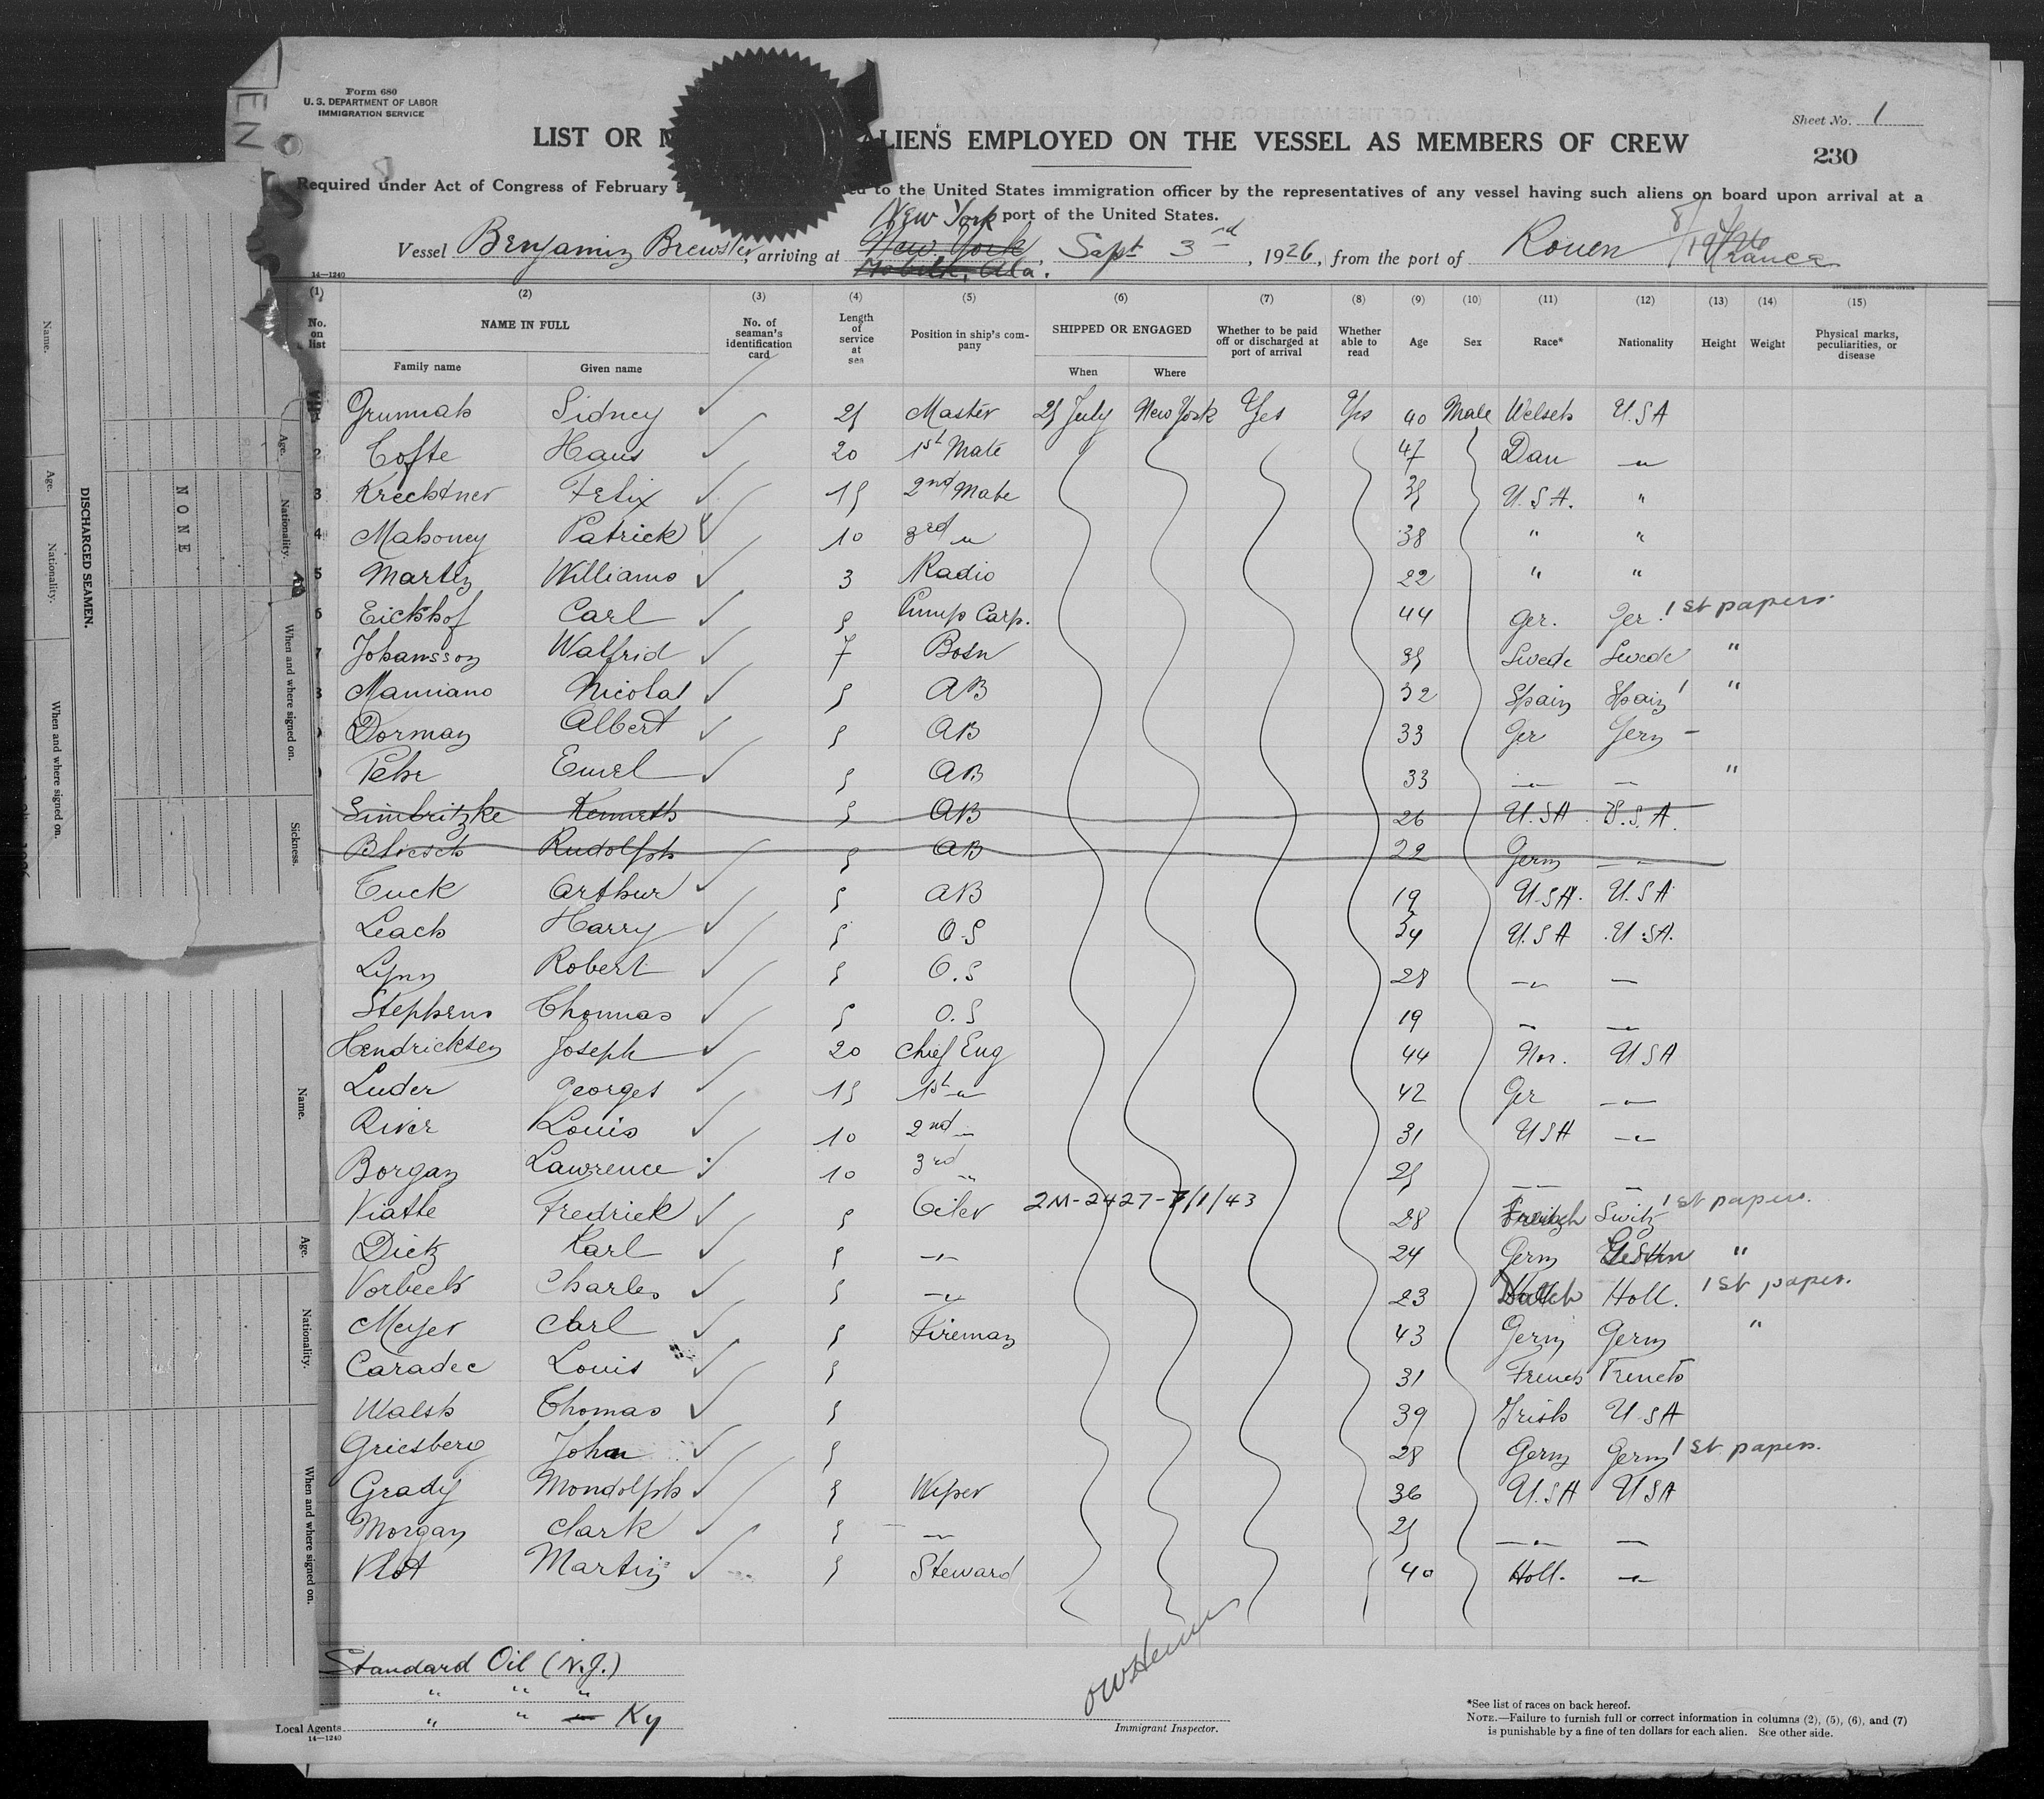 Form 680
U. S. DEPARTMENT OF LABOR
IMMIGRATION SERVICE
Sheet No. 1
LIST OR ALIENS EMPLOYED ON THE VESSEL AS MEMBERS OF CREW
230
Required under Act of Congress of February to the United States immigration officer by the representatives of any vessel having such aliens on board upon arrival at a
port of the United States.
New York
Vessel Benjamin Brewster, arriving at New York, Sept 3rd, 1926, from the port of Rouen France
Mobile, Ala.
14—1240
(1) (2) (3) (4) (5) (6) (7) (8) (9) (10) (11) (12) (13) (14) (15)
No. on list NAME IN FULL No. of seaman's identification card Length of service at sea Position in ship's company SHIPPED OR ENGAGED Whether to be paid off or discharged at port of arrival Whether able to read Age Sex Race* Nationality Height Weight Physical marks, peculiarities, or disease
Family name Given name When Where
Sidney 25 Master 25 July New York Yes Yes 40 Male Welsh U.S.A
2 Tofte Hans 20 1st Mate 47 Dan "
3 Krechtner Felix 15 2nd Mate 35 U.S.A. "
4 Mahoney Patrick 10 3rd " 38 " "
5 Martin Williams 3 Radio 22 " "
6 Eickhof Carl 5 Pump Carp. 44 Ger. Ger. 1st papers.
7 Johansson Walfrid 7 Bosn 35 Swede Swede "
Mamiano Nicolas 5 AB 32 Spain Spain "
Dorman Albert 5 AB 33 Ger Germ –
Emel 5 AB 33 " " "
Simbritzke Kenneth 5 AB 26 U.SA U.S.A.
Rudolph 5 AB 22 Germ "
Tuck Arthur 5 AB 19 U.SA. U.SA
Leach Harry 5 O.S 34 U.S.A U.SA.
Lynn Robert 5 O.S 28 " "
Stephens Thomas 5 O.S 19 " "
Hendricksen Joseph 20 Chief Eng 44 Nor. USA
Luder Georges 15 1st " 42 Ger "
River Louis 10 2nd " 31 USA "
Borgan Lawrence 10 3rd " 25 " "
Viatte Fredrick 5 Oiler 2M-2427-7/1/43 28 Switz 1st papers.
Dietz Karl 5 " 24 Germ "
Vorbeck Charles 5 " 23 Holl. 1st paper.
Meyer Carl 5 Fireman 43 Germ Germ "
Caradec Louis 5 31 French French
Walsh Thomas 5 39 Irish USA
Griesberg John 5 28 Germ Germ 1st papers.
Grady Mondolph 5 Wiper 36 U.SA USA
Morgan Clark 5 " 25 " "
Vlot Martin 5 Steward 40 Holl. "
Standard Oil (N.J.)
" " "
Local Agents " " " Ky
14—1240
Immigrant Inspector.
*See list of races on back hereof.
NOTE.—Failure to furnish full or correct information in columns (2), (5), (6), and (7)
is punishable by a fine of ten dollars for each alien. See other side.
DISCHARGED SEAMEN.
Name.
Age.
Nationality.
When and where signed on.
NONE
Age.
Nationality.
When and where signed on.
Sickness.
Name.
Age.
Nationality.
When and where signed on.